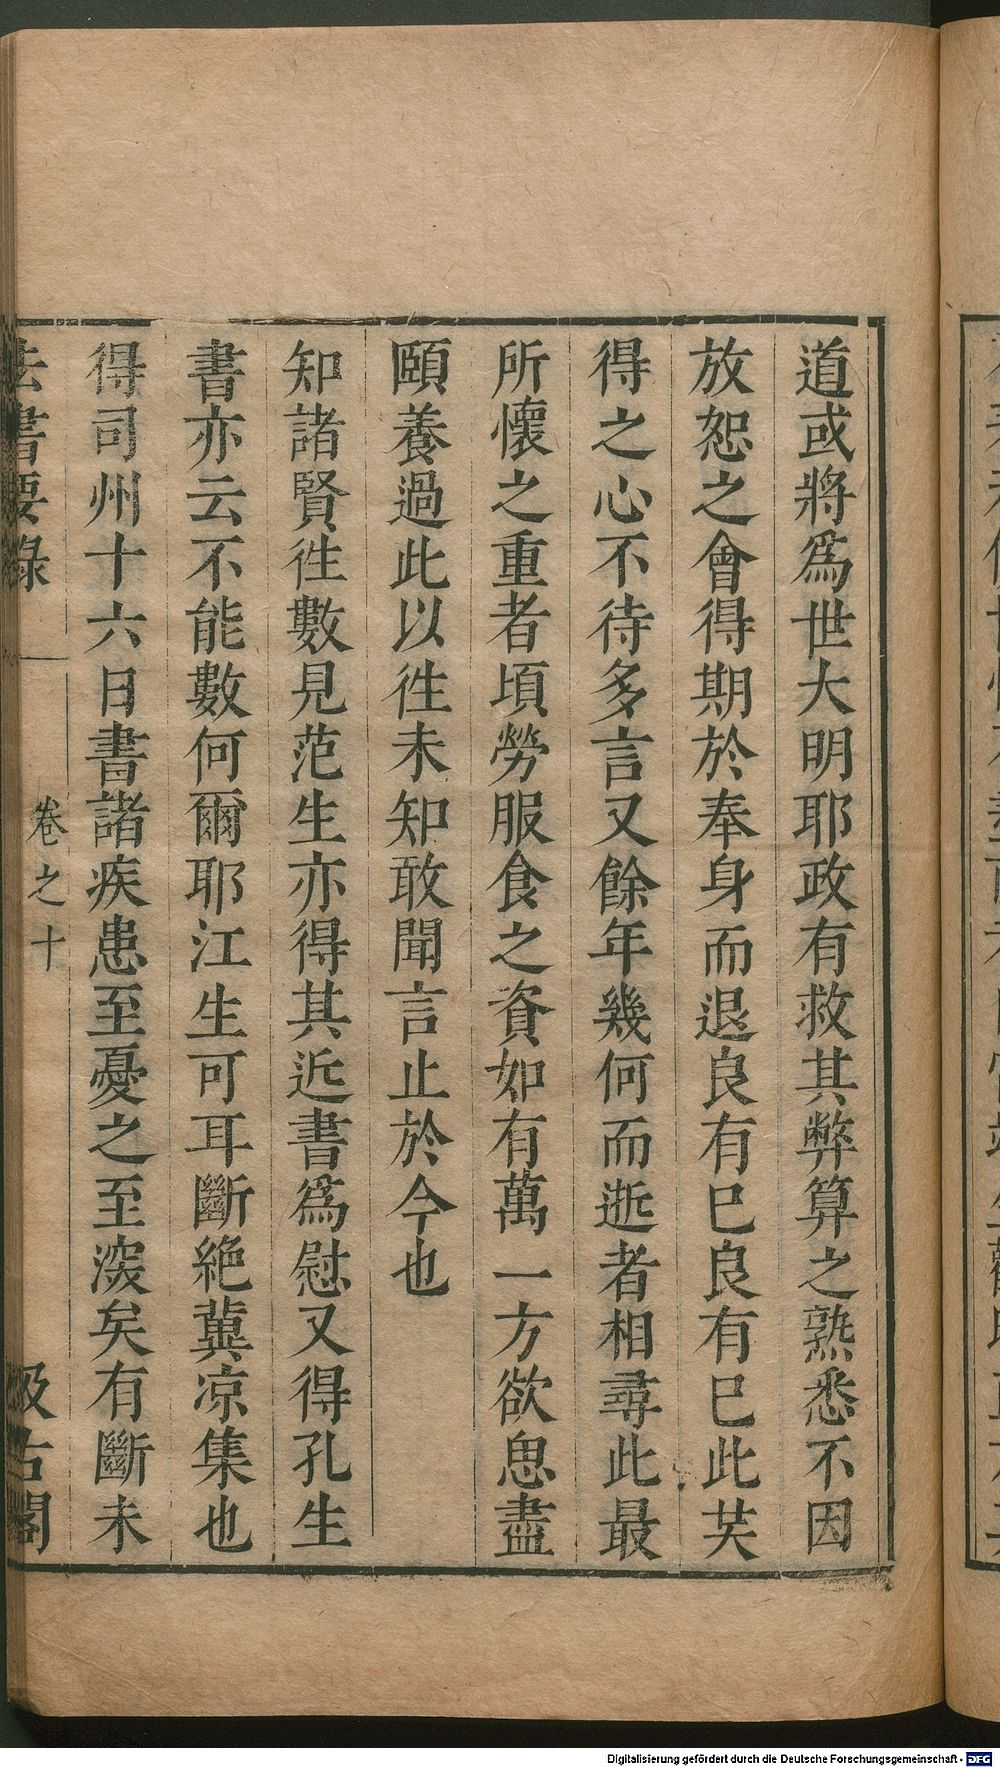 道或將爲世大明耶政有救其弊算之熟悉不因
放恕之會得期於奉身而退良有巳良有巳此芺
得之心不待多言又餘年幾何而逝者相尋此最
所懷之重者頃勞服食之資如有萬一方欲思盡
頤養過此以徃未知敢聞言止於今也
知諸賢徃數見范生亦得其近書爲慰又得孔生
書亦云不能數何爾耶江生可耳斷絶冀凉集也
得司州十六日書諸疾患至憂之至湥矣有斷未
法書要錄
卷之十
汲古閣
Digitalisierung gefördert durch die Deutsche Forschungsgemeinschaft - DFG